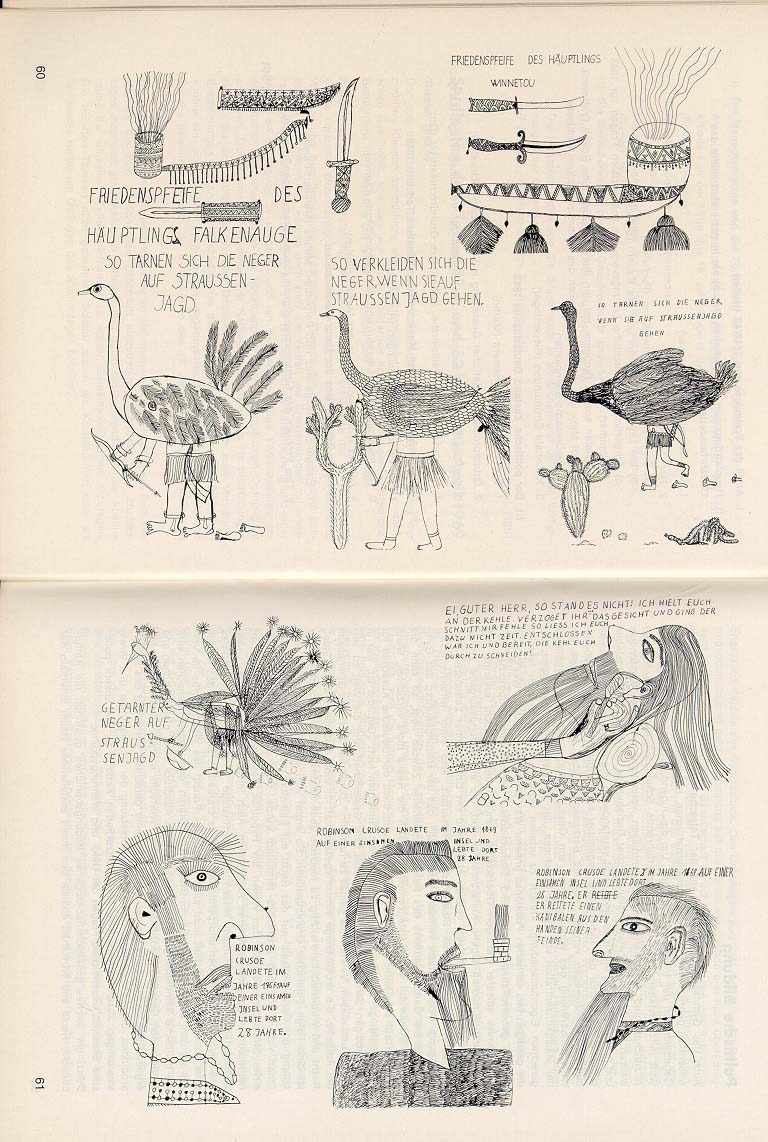 60
FRIEDENSPFEIFE DES
HÄUPTLINGS FALKENAUGE
FRIEDENSPFEIFE DES HÄUPTLINGS
WINNETOU
SO TARNEN SICH DIE NEGER
AUF STRAUSSEN-
JAGD
SO VERKLEIDEN SICH DIE
NEGER, WENN SIE AUF
STRAUSSENJAGD GEHEN.
SO TARNEN SICH DIE NEGER,
WENN SIE AUF STRAUSSENJAGD
GEHEN
GETARNTER
NEGER AUF
STRAUS-
SENJAGD
EI, GUTER HERR, SO STAND ES NICHT! ICH HIELT EUCH
AN DER KEHLE. VERZOGET IHR DAS GESICHT UND GING DER
SCHNITT MIR FEHL SO LIESS ICH EUCH
DAZU NICHT ZEIT. ENTSCHLOSSEN
WAR ICH UND BEREIT, DIE KEHL EUCH
DURCH ZU SCHNEIDEN!
ROBINSON
CRUSOE
LANDETE IM
JAHRE AUF
EINER EINSAMEN
INSEL UND
LEBTE DORT
28 JAHRE.
ROBINSON CRUSOE LANDETE IM JAHRE
AUF EINER EINSAMEN INSEL UND
LEBTE DORT
28 JAHRE
ROBINSON CRUSOE LANDETE IM JAHRE AUF EINER
EINSAMEN INSEL UND LEBTE DORT
28 JAHRE. ER
ER RETTETE EINEN
KANIBALEN AUS DEN
HÄNDEN SEINER
FEINDE.
61